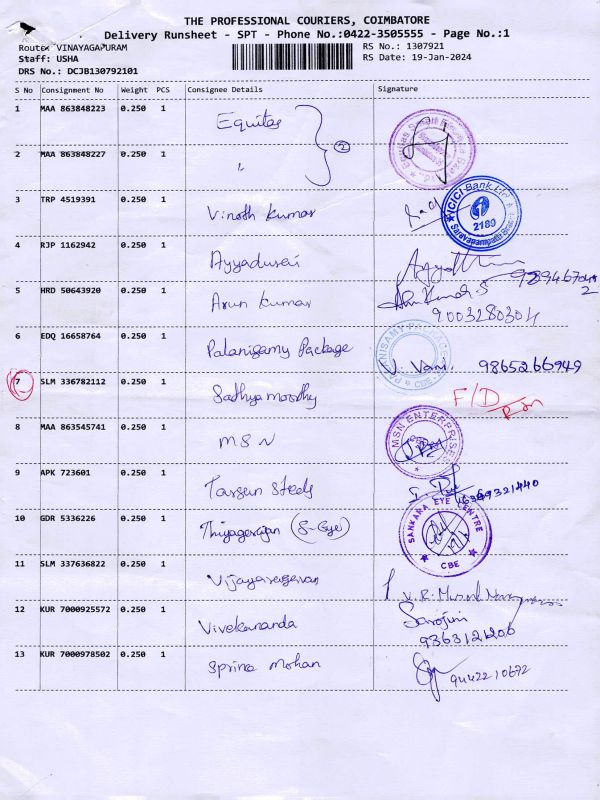 THE PROFESSIONAL COURIERS, COIMBATORE
Delivery Runsheet - SPT - Phone No.:0422-3505555 - Page No.:1
Route: VINAYAGAPURAM RS No.: 1307921
Staff: USHA RS Date: 19-Jan-2024
DRS No.: DCJB130792101
S No Consignment No Weight PCS Consignee Details Signature
1 MAA 863848223 0.250 1 Equitas
2 MAA 863848227 0.250 1 " 2
3 TRP 4519391 0.250 1 Vinoth Kumar ICICI Bank Ltd 2189
4 RJP 1162942 0.250 1 Ayyadurai
5 HRD 50643920 0.250 1 Arun Kumar 9003280304
6 EDQ 16658764 0.250 1 Palanisamy Package PALANISAMY PACKAGE CBE V. Vani 9865266949
7 SLM 336782112 0.250 1 Sathya moorthy F/D
8 MAA 863545741 0.250 1 MSN MSN ENTERPRISES
9 APK 723601 0.250 1 Tarsun Steels
10 GDR 5336226 0.250 1 Thiyagarajan (S-Eye) SANKARA EYE CENTRE CBE
11 SLM 337636822 0.250 1
12 KUR 7000925572 0.250 1 Vivekananda Sarojini
13 KUR 7000978502 0.250 1 Mohan 9442210672